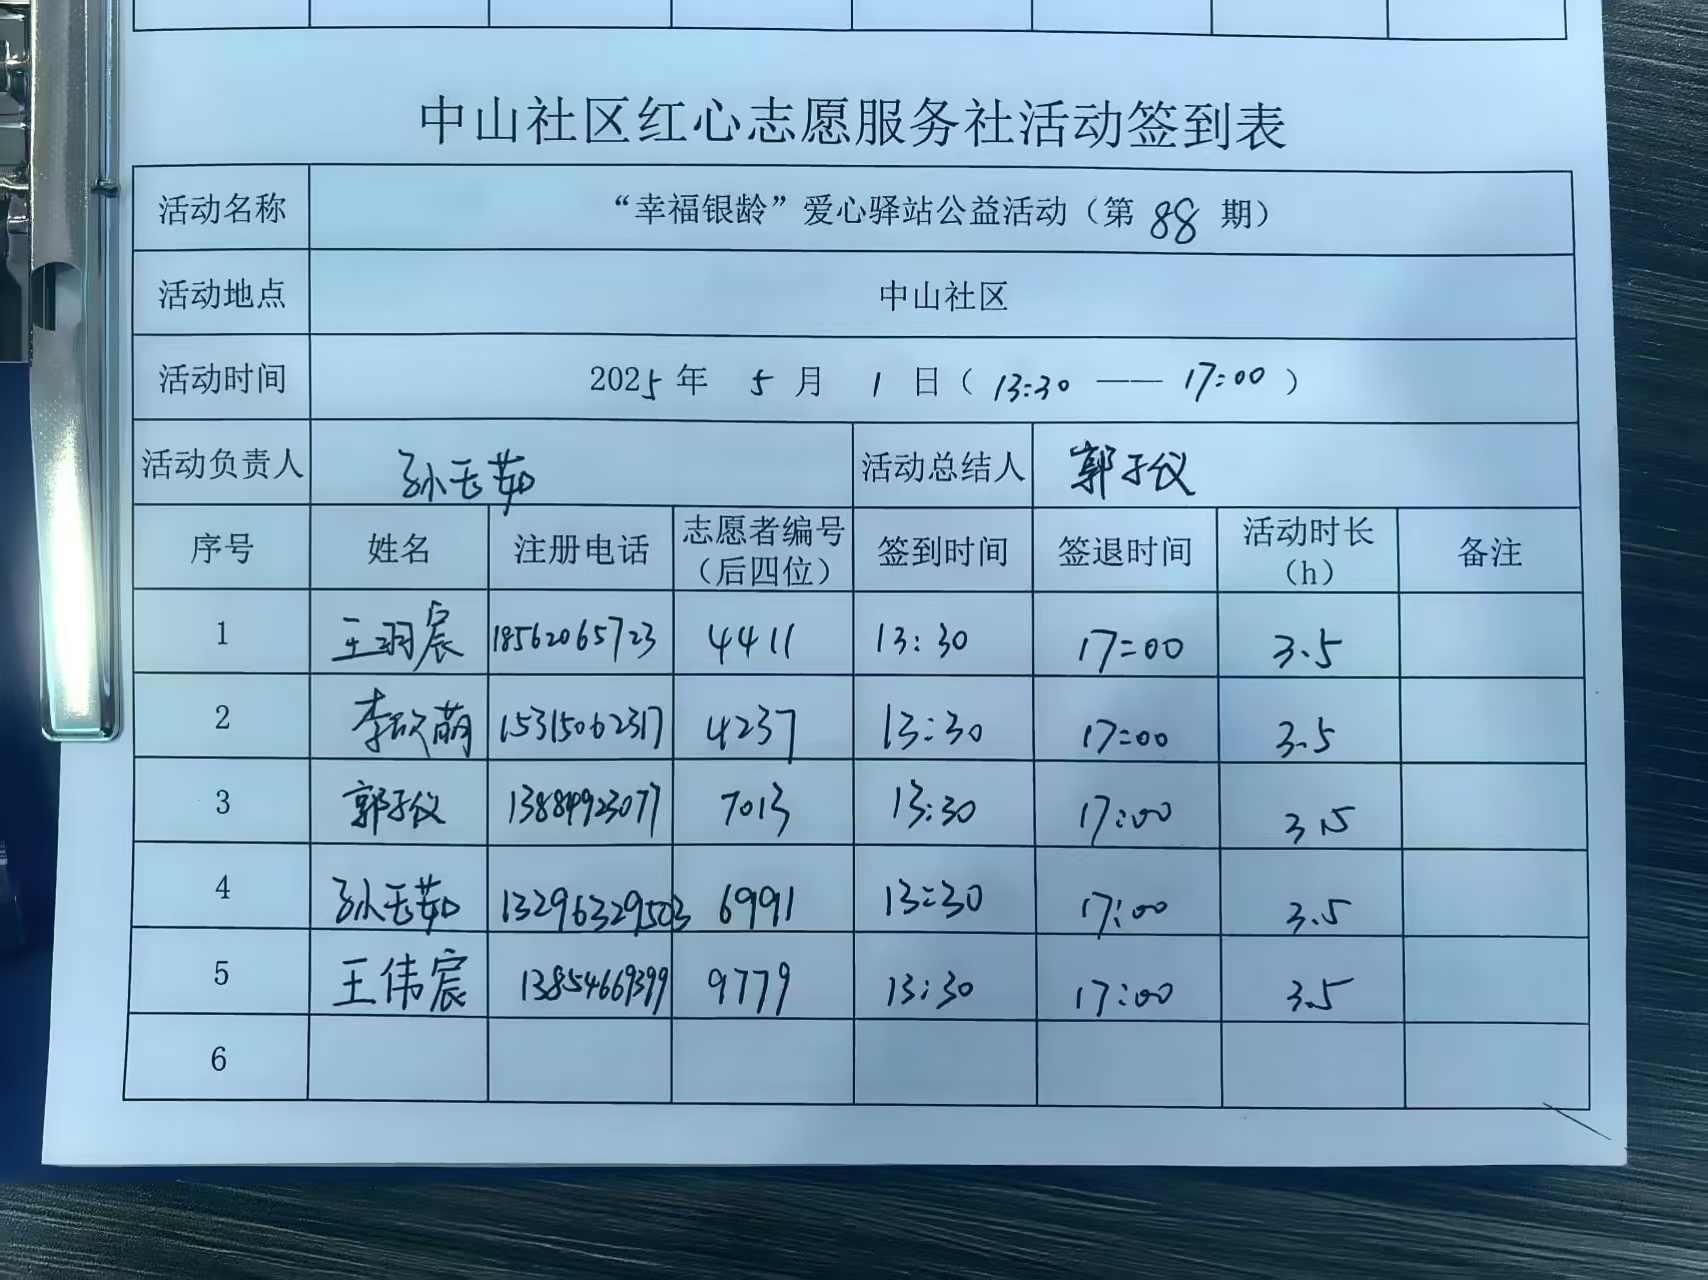 中山社区红心志愿服务社活动签到表
活动名称 “幸福银龄”爱心驿站公益活动（第 88 期）
活动地点 中山社区
活动时间 2025年 5 月 1 日（13:30 —— 17:00）
活动负责人 孙玉茹 活动总结人 郭子仪
序号 姓名 注册电话 志愿者编号（后四位） 签到时间 签退时间 活动时长（h） 备注
1 王羽宸 18562065723 4411 13:30 17:00 3.5
2 李欣萌 15315062317 4237 13:30 17:00 3.5
3 郭子仪 7013 13:30 17:00 3.5
4 孙玉茹 13296329503 6991 13:30 17:00 3.5
5 王伟宸 13854669399 9779 13:30 17:00 3.5
6